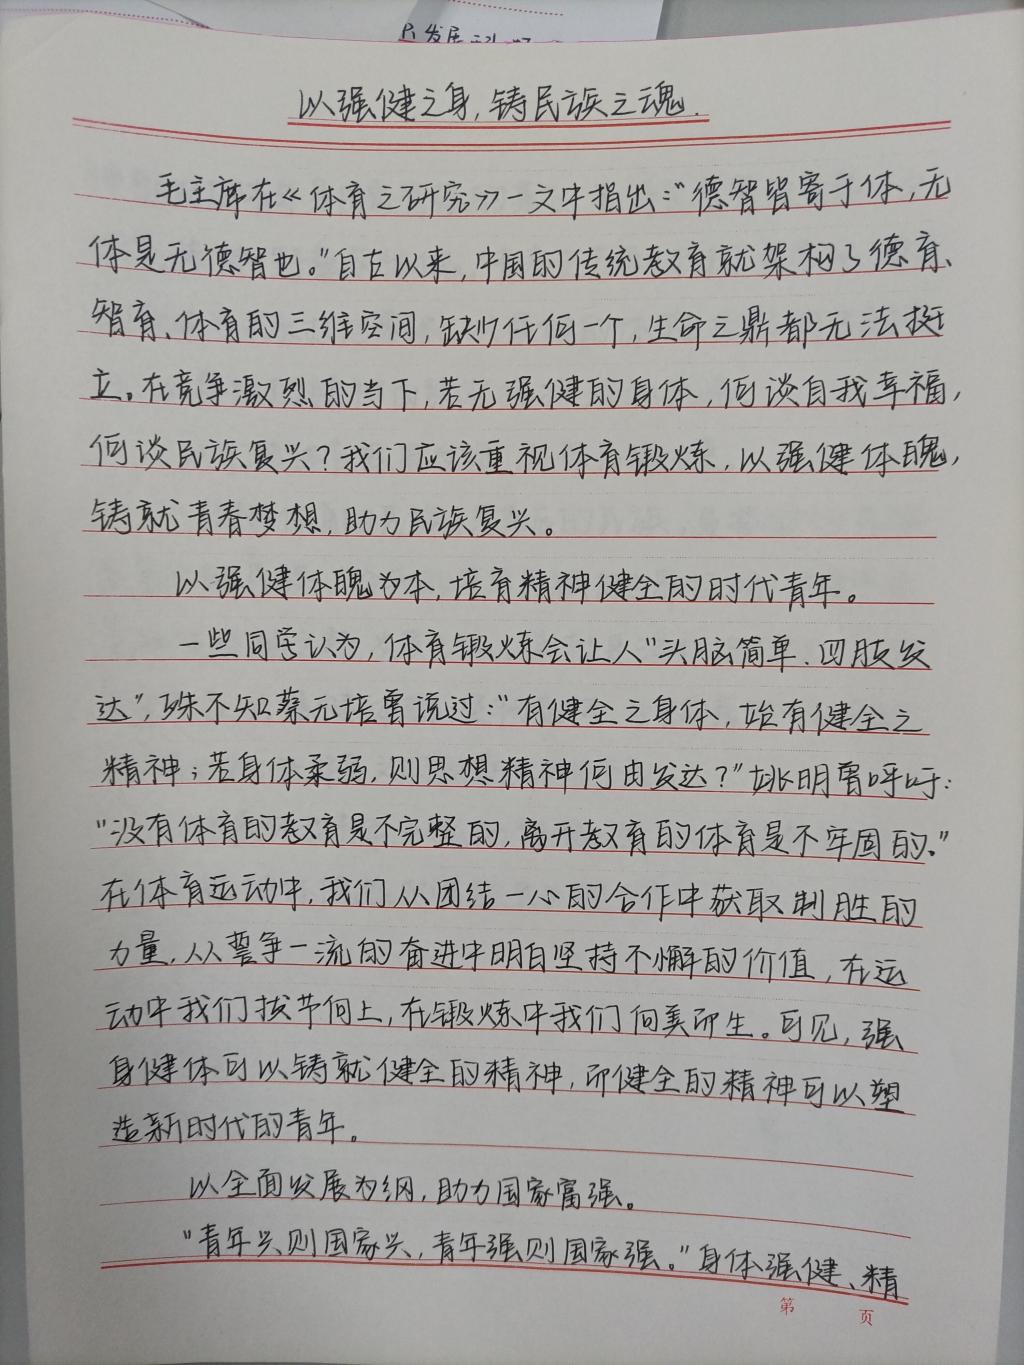 发展
以强健之身,铸民族之魂.
毛主席在《体育之研究》一文中指出:“德智皆寄于体,无
体是无德智也。”自古以来,中国的传统教育就架构了德育、
智育、体育的三维空间,缺少任何一个,生命之鼎都无法挺
立。在竞争激烈的当下,若无强健的身体,何谈自我幸福,
何谈民族复兴?我们应该重视体育锻炼,以强健体魄,
铸就青春梦想,助力民族复兴。
以强健体魄为本,培育精神健全的时代青年。
一些同学认为,体育锻炼会让人“头脑简单、四肢发
达”,殊不知蔡元培曾说过:“有健全之身体,始有健全之
精神;若身体柔弱,则思想精神何由发达?”姚明曾呼吁:
“没有体育的教育是不完整的,离开教育的体育是不牢固的。”
在体育运动中,我们从团结一心的合作中获取制胜的
力量,从誓争一流的奋进中明白坚持不懈的价值,在运
动中我们拔节向上,在锻炼中我们向美而生。可见,强
身健体可以铸就健全的精神,而健全的精神可以塑
造新时代的青年。
以全面发展为纲,助力国家富强。
“青年兴则国家兴,青年强则国家强。”身体强健、精
第 页